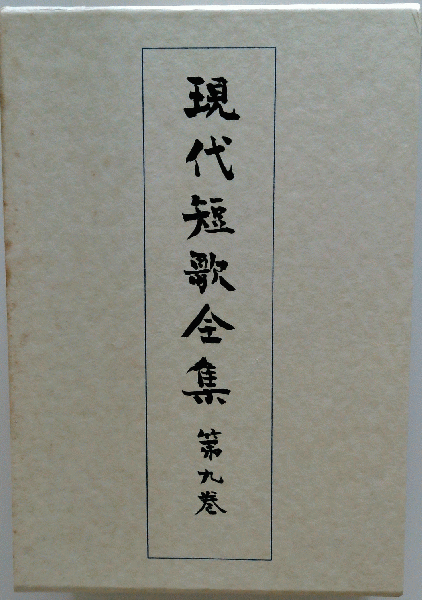 現代短歌全集 第九巻